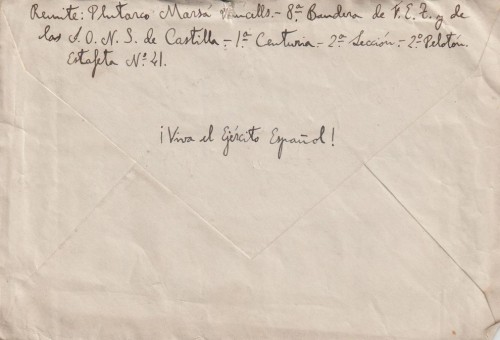 Remite: Plutarco Marsá Vancells.- 8ª Bandera de F.E.T. y de
las J.O.N.S. de Castilla.- 1ª Centuria.- 2ª Sección.- 2º Pelotón.
Estafeta Nº 41.
¡Viva el Ejército Español!